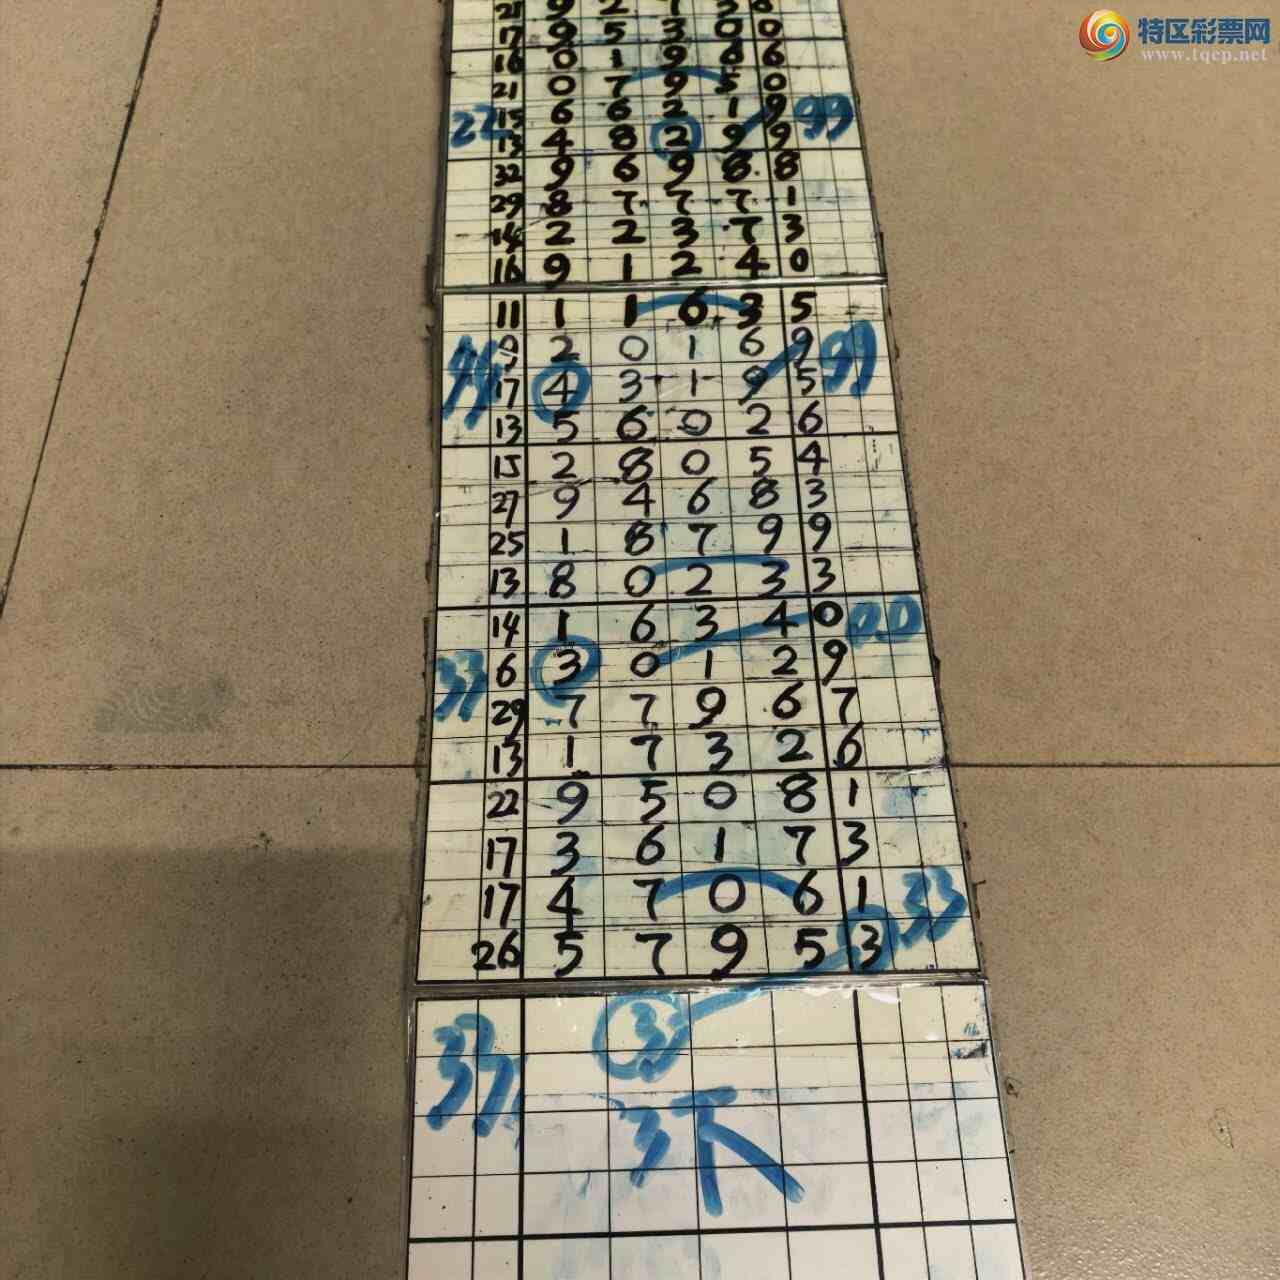 特区彩票网
www.tqcp.net
17 9 5 3 0 0
16 0 1 9 6 6
21 0 7 9 5 0
15 6 6 2 1 9
22 13 4 8 2 9 9 99
32 9 6 9 8 8
29 8 7 7 7 1
14 2 2 3 7 3
16 9 1 2 4 0
11 1 1 6 3 5
9 2 0 1 6 9 99
44 17 4 3 1 9 5
13 5 6 0 2 6
15 2 8 0 5 4
27 9 4 6 8 3
25 1 8 7 9 9
13 8 0 2 3 3
14 1 6 3 4 0 00
33 6 3 0 1 2 9
29 7 7 9 6 7
13 1 7 3 2 6
22 9 5 0 8 1
17 3 6 1 7 3
17 4 7 0 6 1 33
26 5 7 9 5 3
33 33
3下